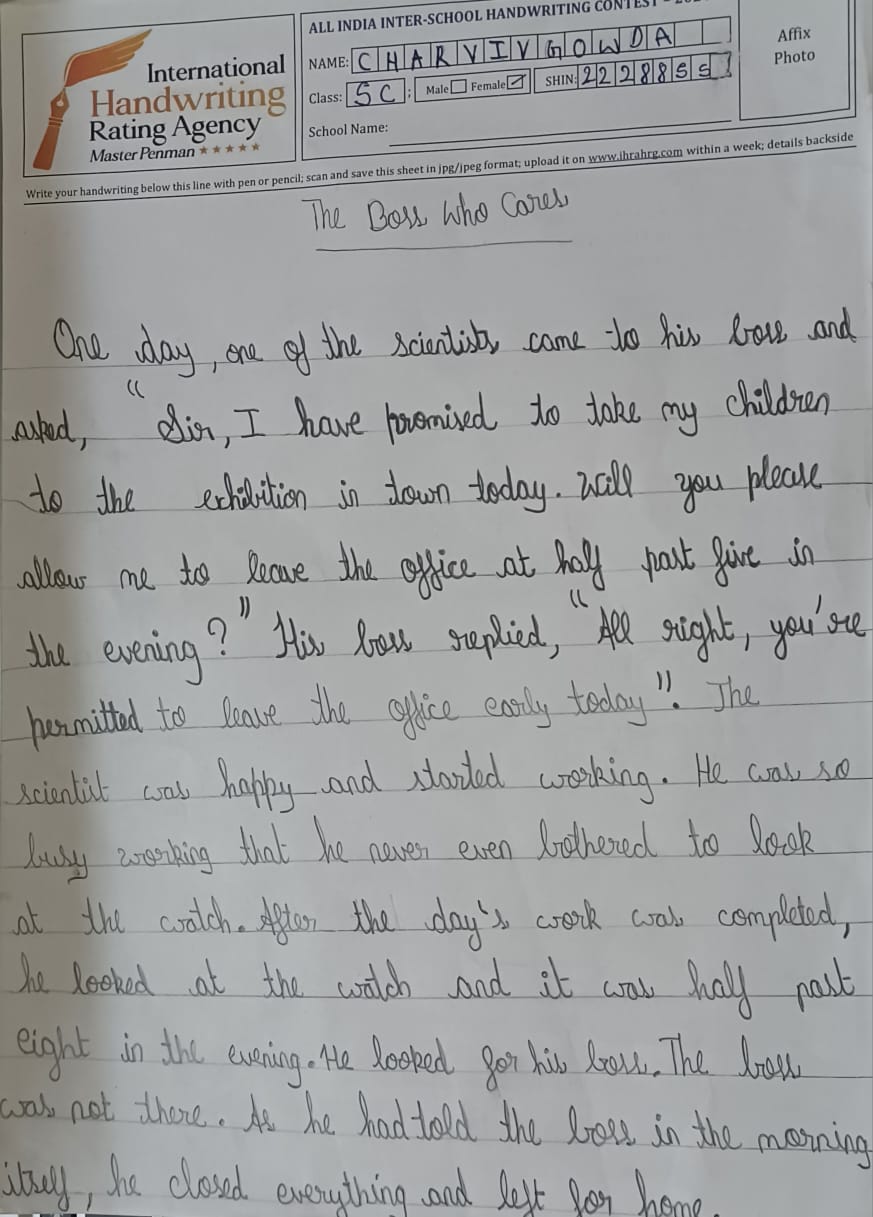 ALL INDIA INTER-SCHOOL HANDWRITING CONTEST
International
Handwriting
Rating Agency
Master Penman ★★★★★
NAME: CHARVI V GOWDA
Class: 5C ; Male Female ✓ SHIN: 2228855
School Name:
Affix
Photo
Write your handwriting below this line with pen or pencil; scan and save this sheet in jpg/jpeg format; upload it on www.ihrahrg.com within a week; details backside
The Boss Who Cares
One day, one of the scientists came to his boss and
asked, "Sir, I have promised to take my children
to the exhibition in town today. Will you please
allow me to leave the office at half past five in
the evening?" His boss replied, "All right, you're
permitted to leave the office early today". The
scientist was happy and started working. He was so
busy working that he never even bothered to look
at the watch. After the day's work was completed,
he looked at the watch and it was half past
eight in the evening. He looked for his boss. The boss
was not there. As he had told the boss in the morning
itself, he closed everything and left for home.